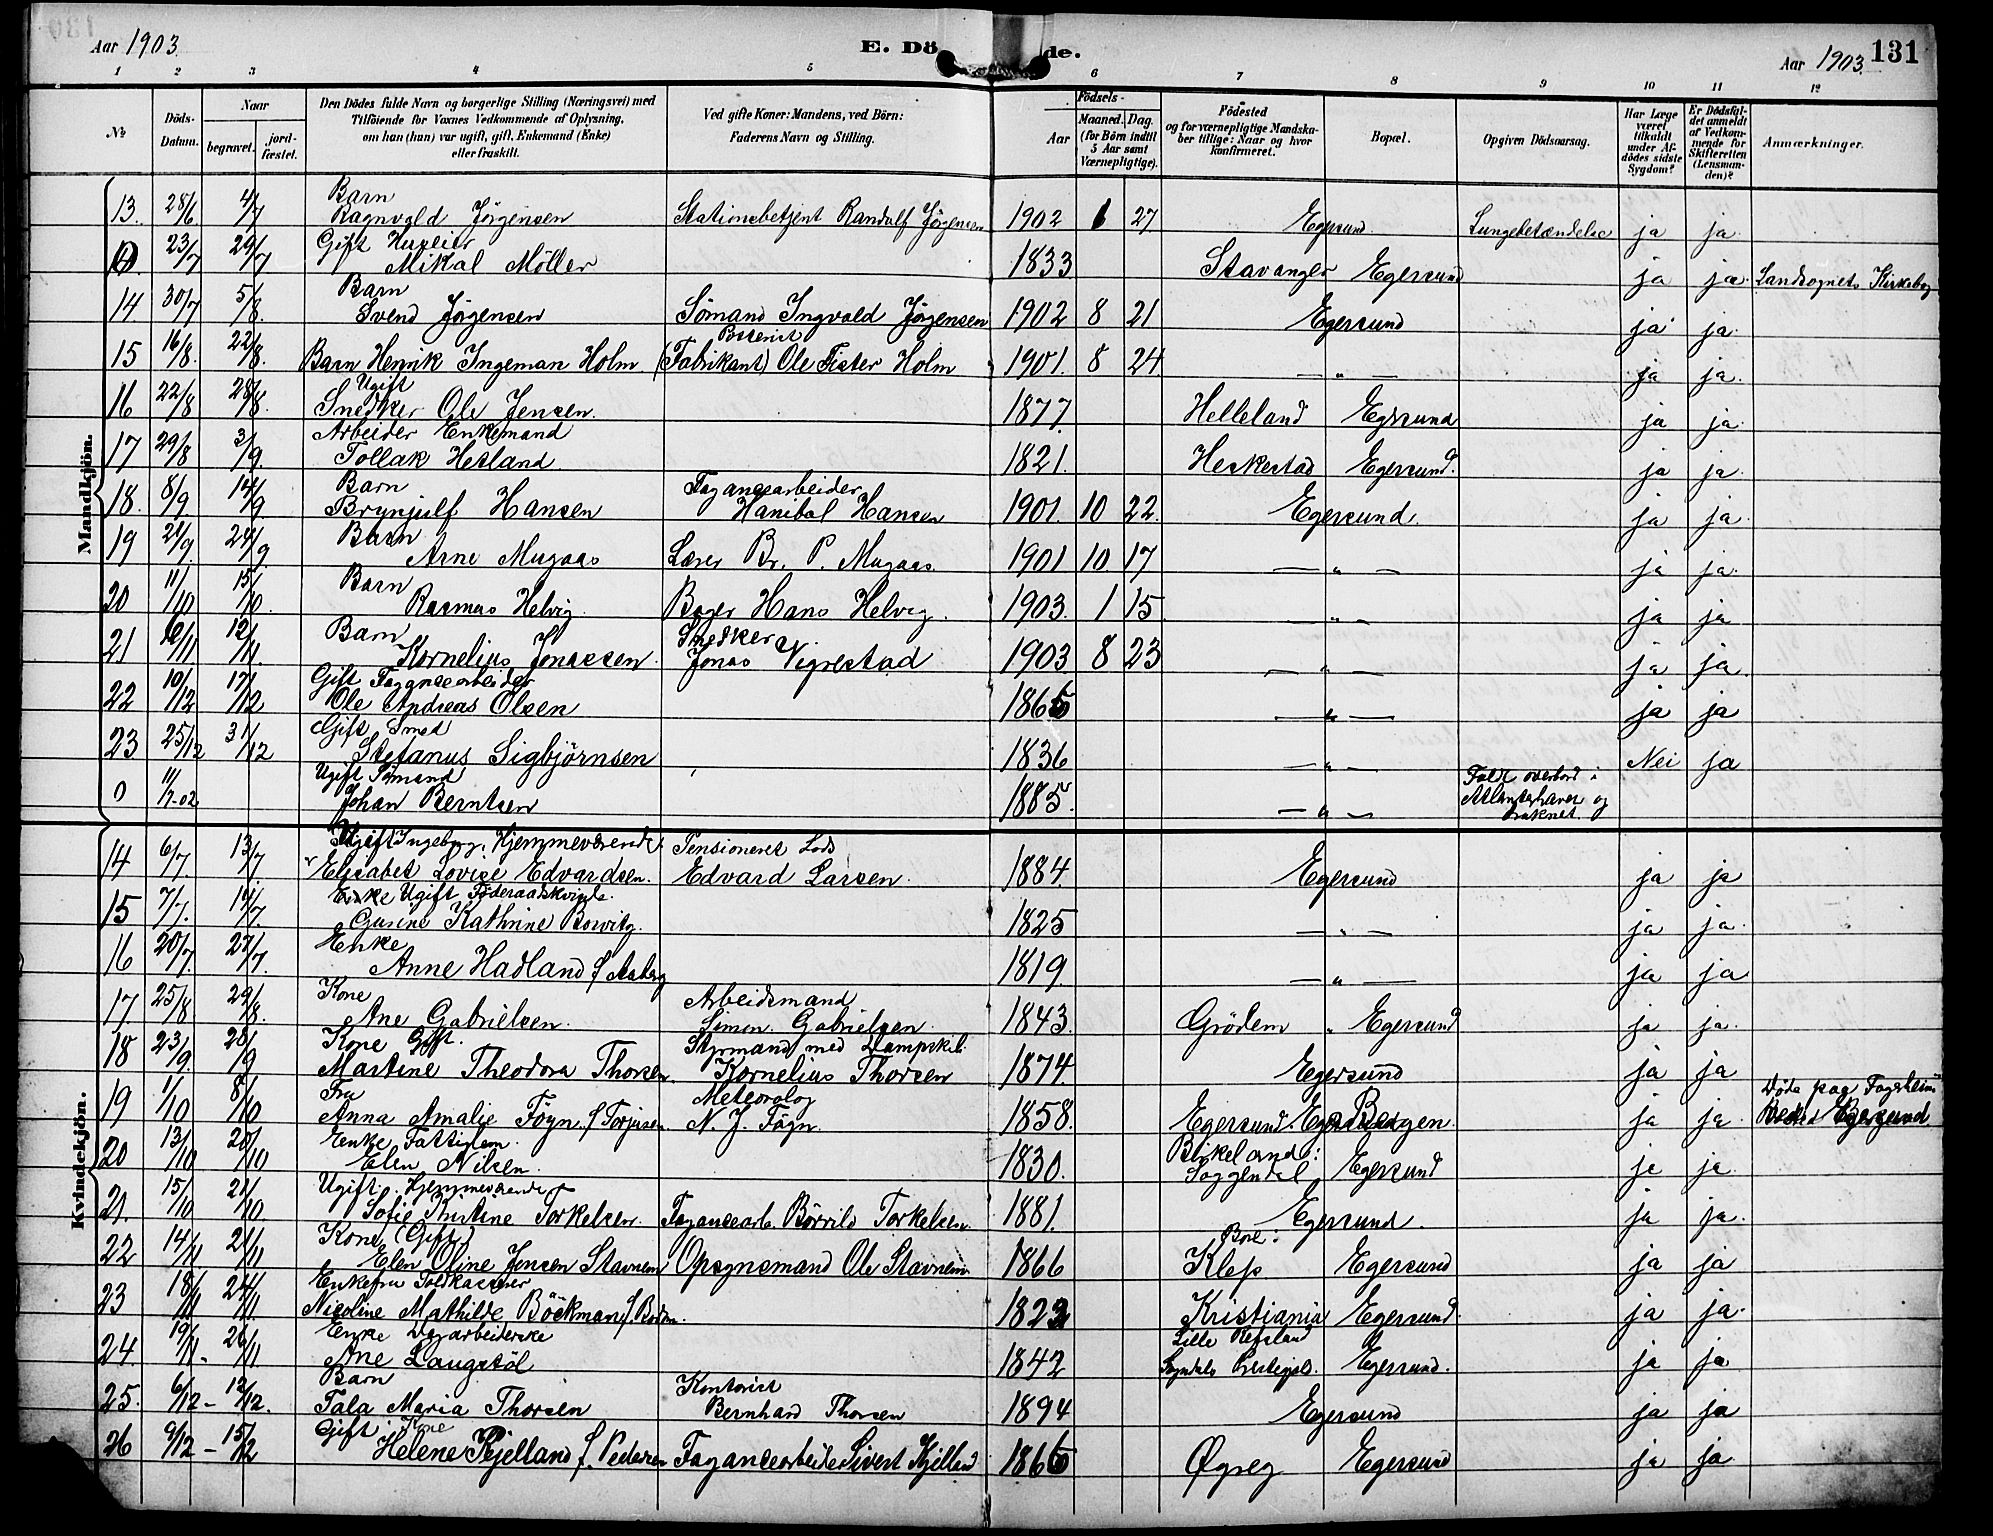 Aar 1903.
E. Dö
de.
Aar 1903.
131
1 2 3 4 5 6 7 8 9 10 11 12
№
Döds-Datum.
Naar
begravet.
jord-fæstet.
Den Dödes fulde Navn og borgerlige Stilling (Næringsvei) med
Tilföiende for Voxnes Vedkommende af Oplysning,
om han (hun) var ugift, gift, Enkemand (Enke)
eller fraskilt.
Ved gifte Koner: Mandens, ved Börn:
Faderens Navn og Stilling.
Födsels-
Aar
Maaned. Dag.
(for Börn indtil
5 Aar samt
Værnepligtige).
Födested
og for værnepligtige Mandska-
ber tillige: Naar og hvor
konfirmeret.
Bopæl.
Opgiven Dödsaarsag.
Har Læge
været
tilkaldt
under Af-
dödes sidste
Sygdom?
Er Dödsfal-
det anmeldt
af Vedkom-
mende for
Skifteretten
(Lensman-
den)?
Anmærkninger.
Mandkjön.
Barn
13. 28/6 4/7 Ragnvald Jørgensen Stationsbetjent Randulf Jørgensen 1902 6 27 Egersund. Lungebetændelse ja ja
Gift Huseier
0. 23/7 29/7 Mikal Möller 1833 Stavanger Egersund ja ja Landsognets Kirkebog
Barn
14 30/7 5/8. Svend Jørgensen Sömand Ingvald Jørgensen 1902 8 21 Egersund ja ja.
15 16/8. 22/8. Barn Henrik Ingeman Holm (Fabrikant) Ole Fister Holm 1901. 8 24 — " — ja ja.
Ugift
16 22/8 28/8. Snedker Ole Jensen. 1877. Helleland Egersund ja ja.
Arbeider Enkemand
17 29/8 3/9. Tollak Hetland 1821. Heskestad Egersund. ja ja.
Barn Fayancearbeider
18. 8/9 14/9 Brynjulf Hansen Hanibal Hansen 1901. 10 22. Egersund. ja ja.
Barn
19 21/9. 24/9 Arne Mugaas Lærer Br. P. Mugaas. 1901 10 17 — " — ja ja.
Barn
20 11/10 15/10. Rasmus Helvig. Bager Hans Helvig. 1903. 1 15. — " — ja ja
Barn Snedker
21 12/11. Kornelius Jonassen. Jonas Vigrestad 1903 8 23 — " — ja ja.
Gift Fayancearbeider
22 10/12 17/12 Ole Andreas Olsen 1865 — " — ja ja
Gift Smed
23 25/12 31/12 Stefanus Sigbjörnsen 1836 — " — Nei ja
Ugift Sömand
0 11/7-02 Johan Berntsen 1885. — " — Faldt overbord i
Atlanterhavet og
druknet.
Kvindekjön.
Ugift Ingeborg. Hjemmeværende. Pensioneret Lods
14 6/7. 13/7 Elisabet Lovise Edvardsen. Edvard Larsen. 1884. Egersund ja ja
Enke Ugift Föderaadskvinde.
15 7/7. 14/7. Gurine Kathrine 1825 — " — ja ja.
Enke
16 20/7. 27/7. Anne Hadland f Aaberg 1819. — " — ja ja
Kone Arbeidsmand
17 25/8 29/8. Ane Gabrielsen. Simon Gabrielsen. 1843. Grödem Egersund ja ja.
Kone Gift. Styrmand med Dampskib
18 23/9. 28/9 Martine Theodora Thorsen. Kornelius Thorsen 1874. Egersund ja ja
Fru Meteorolog
19 1/10 8/10 Anna Amalie Föyn. f Torjusen N. J. Föyn. 1858. Egersund. Bergen ja ja. Döde paa
Egersund
Enke Fattiglem.
20 13/10 20/10 Elen Nilsen. 1830. Birkeland: Soggendal Egersund ja ja.
Ugift. Hjemmeværende
21. 15/10 21/10. Sofie Kristine Torkelsen. Fayancearb. Börrild Torkelsen 1881. Egersund. ja ja.
Kone (Gift)
22 14/11 21/11 Elen Oline Jensen Stavnem Opsynsmand Ole Stavnem 1866 Bore: Klep Egersund ja ja
Enkefru Toldkasserer
23 18/11 24/11. Nicoline Mathilde Böckman 1822 Kristiania Egersund. ja ja.
Enke Dagarbeiderske
24. 19/11 - 26/11 Ane Laugstöl 1842 Lille Refsland
Sogndals Præstegjeld. Egersund. ja ja
Barn Kontorist
25. 6/12 - 12/12. Tala Maria Thorsen Bernhard Thorsen 1894 Egersund ja ja
Gift Kone
26 9/12 - 15/12 Helene Kjelland f. Pedersen Fayancearbeider Sivert Kjelland 1866 Øgrey Egersund ja ja.